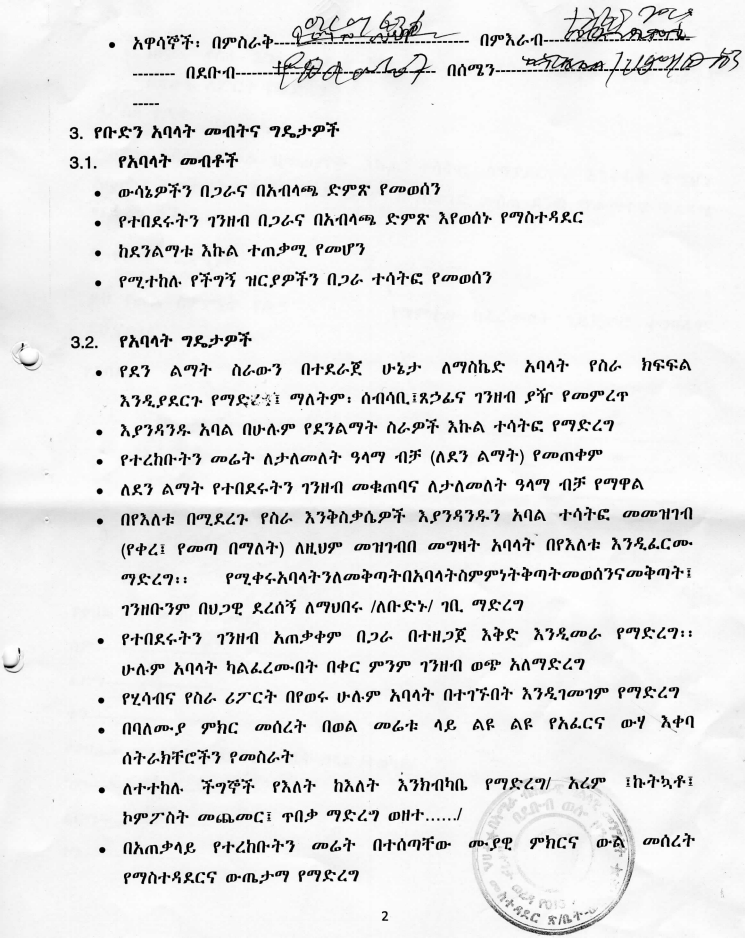 • አዋሳኞች፡ በምስራቅ----------------------------------- በምእራብ-------------------------
-------- በደቡብ------------------------------------ በሰሜን--------------------------------
-----
3. የቡድን አባላት መብትና ግዴታዎች
3.1. የአባላት መብቶች
• ውሳኔዎችን በጋራና በአብላጫ ድምጽ የመወሰን
• የተበደሩትን ገንዘብ በጋራና በአብላጫ ድምጽ እየወሰኑ የማስተዳደር
• ከደንልማቱ እኩል ተጠቃሚ የመሆን
• የሚተከሉ የችግኝ ዝርያዎችን በጋራ ተሳትፎ የመወሰን
3.2. የአባላት ግዴታዎች
• የደን ልማት ስራውን በተደራጀ ሁኔታ ለማስኬድ አባላት የስራ ክፍፍል
እንዲያደርጉ ማለትም፡ ሰብሳቢ፤ጸኃፊና ገንዘብ ያዥ የመምረጥ
• እያንዳንዱ አባል በሁሉም የደንልማት ስራዎች እኩል ተሳትፎ የማድረግ
• የተረከቡትን መሬት ለታለመለት ዓላማ ብቻ (ለደን ልማት) የመጠቀም
• ለደን ልማት የተበደሩትን ገንዘብ መቁጠባና ለታለመለት ዓላማ ብቻ የማዋል
• በየእለቱ በሚደረጉ የስራ እንቅስቃሴዎች እያንዳንዱን አባል ተሳትፎ መመዝገብ
(የቀረ፤ የመጣ በማለት) ለዚህም መዝገብበ መግዛት አባላት በየእለቱ እንዲፈርሙ
ማድረግ፡፡ የሚቀሩአባላትንለመቅጣትበአባላትስምምነትቅጣትመወሰንናመቅጣት፤
ገንዘቡንም በህጋዊ ደረሰኝ ለማህበሩ /ለቡድኑ/ ገቢ ማድረግ
• የተበደሩትን ገንዘብ አጠቃቀም በጋራ በተዘጋጀ እቅድ እንዲመራ የማድረግ፡፡
ሁሉም አባላት ካልፈረሙበት በቀር ምንም ገንዘብ ወጭ አለማድረግ
• የሂሳብና የስራ ሪፖርት በየወሩ ሁሉም አባላት በተገኙበት እንዲገመገም የማድረግ
• በባለሙያ ምክር መሰረት በወል መሬቱ ላይ ልዩ ልዩ የአፈርና ውሃ እቀባ
ሰትራክቸሮችን የመስራት
• ለተተከሉ ችግኞች የእለት ከእለት እንክብካቤ የማድረግ/ አረም ፤ኩትኳቶ፤
ኮምፖስት መጨመር፤ ጥበቃ ማድረግ ወዘተ....../
• በአጠቃላይ የተረከቡትን መሬት በተሰጣቸው ሙያዊ ምክርና ውል መሰረት
የማስተዳደርና ውጤታማ የማድረግ
2